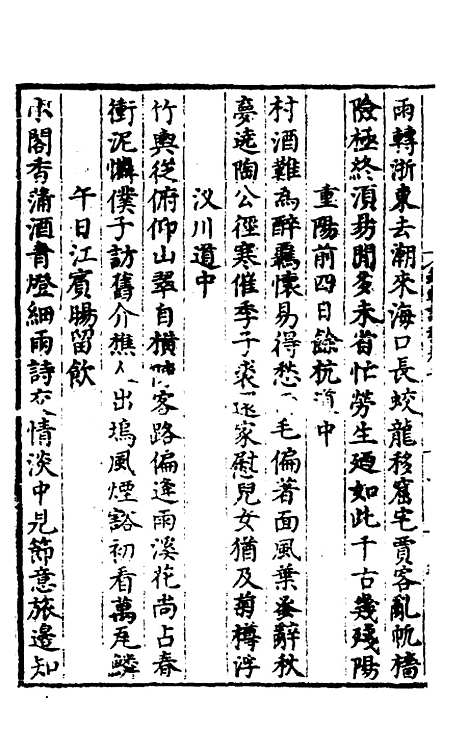 雨轉浙東去潮來海口長蛟龍移窟宅賈客亂帆檣
險極終須易閒多未省忙勞生廼如此千古幾殘陽
重陽前四日餘杭道中
村酒難為醉羈懷易得愁毛偏著面風葉蚤辭秋
夢遶陶公徑寒催季子裘還家慰兒女猶及菊樽浮
汊川道中
竹輿從俯仰山翠自橫陳客路偏逢雨溪花尚占春
衝泥憐僕子訪舊介樵人出塢風煙豁初看萬瓦鱗
午日江賓暘留飲
小閣香蒲酒青燈細雨詩衣情淡中見節意旅邊知